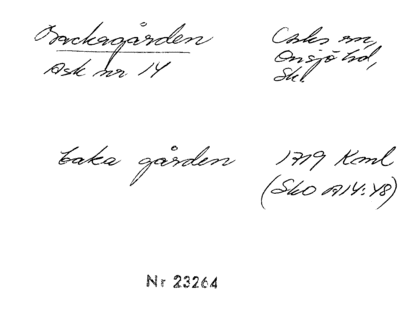 Backagården
Ask nr 14
Asks sn,
Onsjö hd,
Skl
baka gården
1719 Kml
(SkO A14:48)
Nr 23264